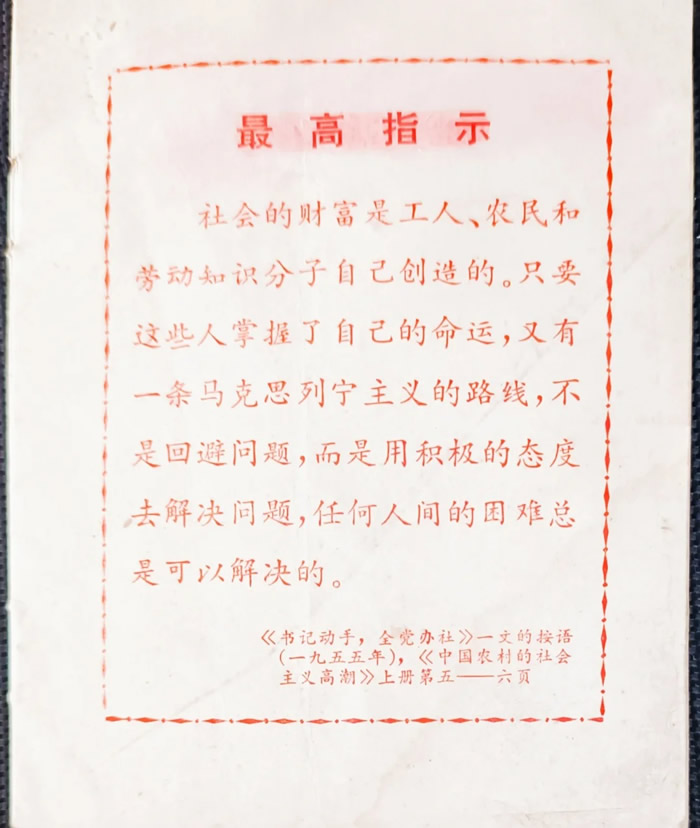 最高指示
社会的财富是工人、农民和
劳动知识分子自己创造的。只要
这些人掌握了自己的命运，又有
一条马克思列宁主义的路线，不
是回避问题，而是用积极的态度
去解决问题，任何人间的困难总
是可以解决的。
《书记动手，全党办社》一文的按语
(一九五五年)，《中国农村的社会
主义高潮》上册第五——六页